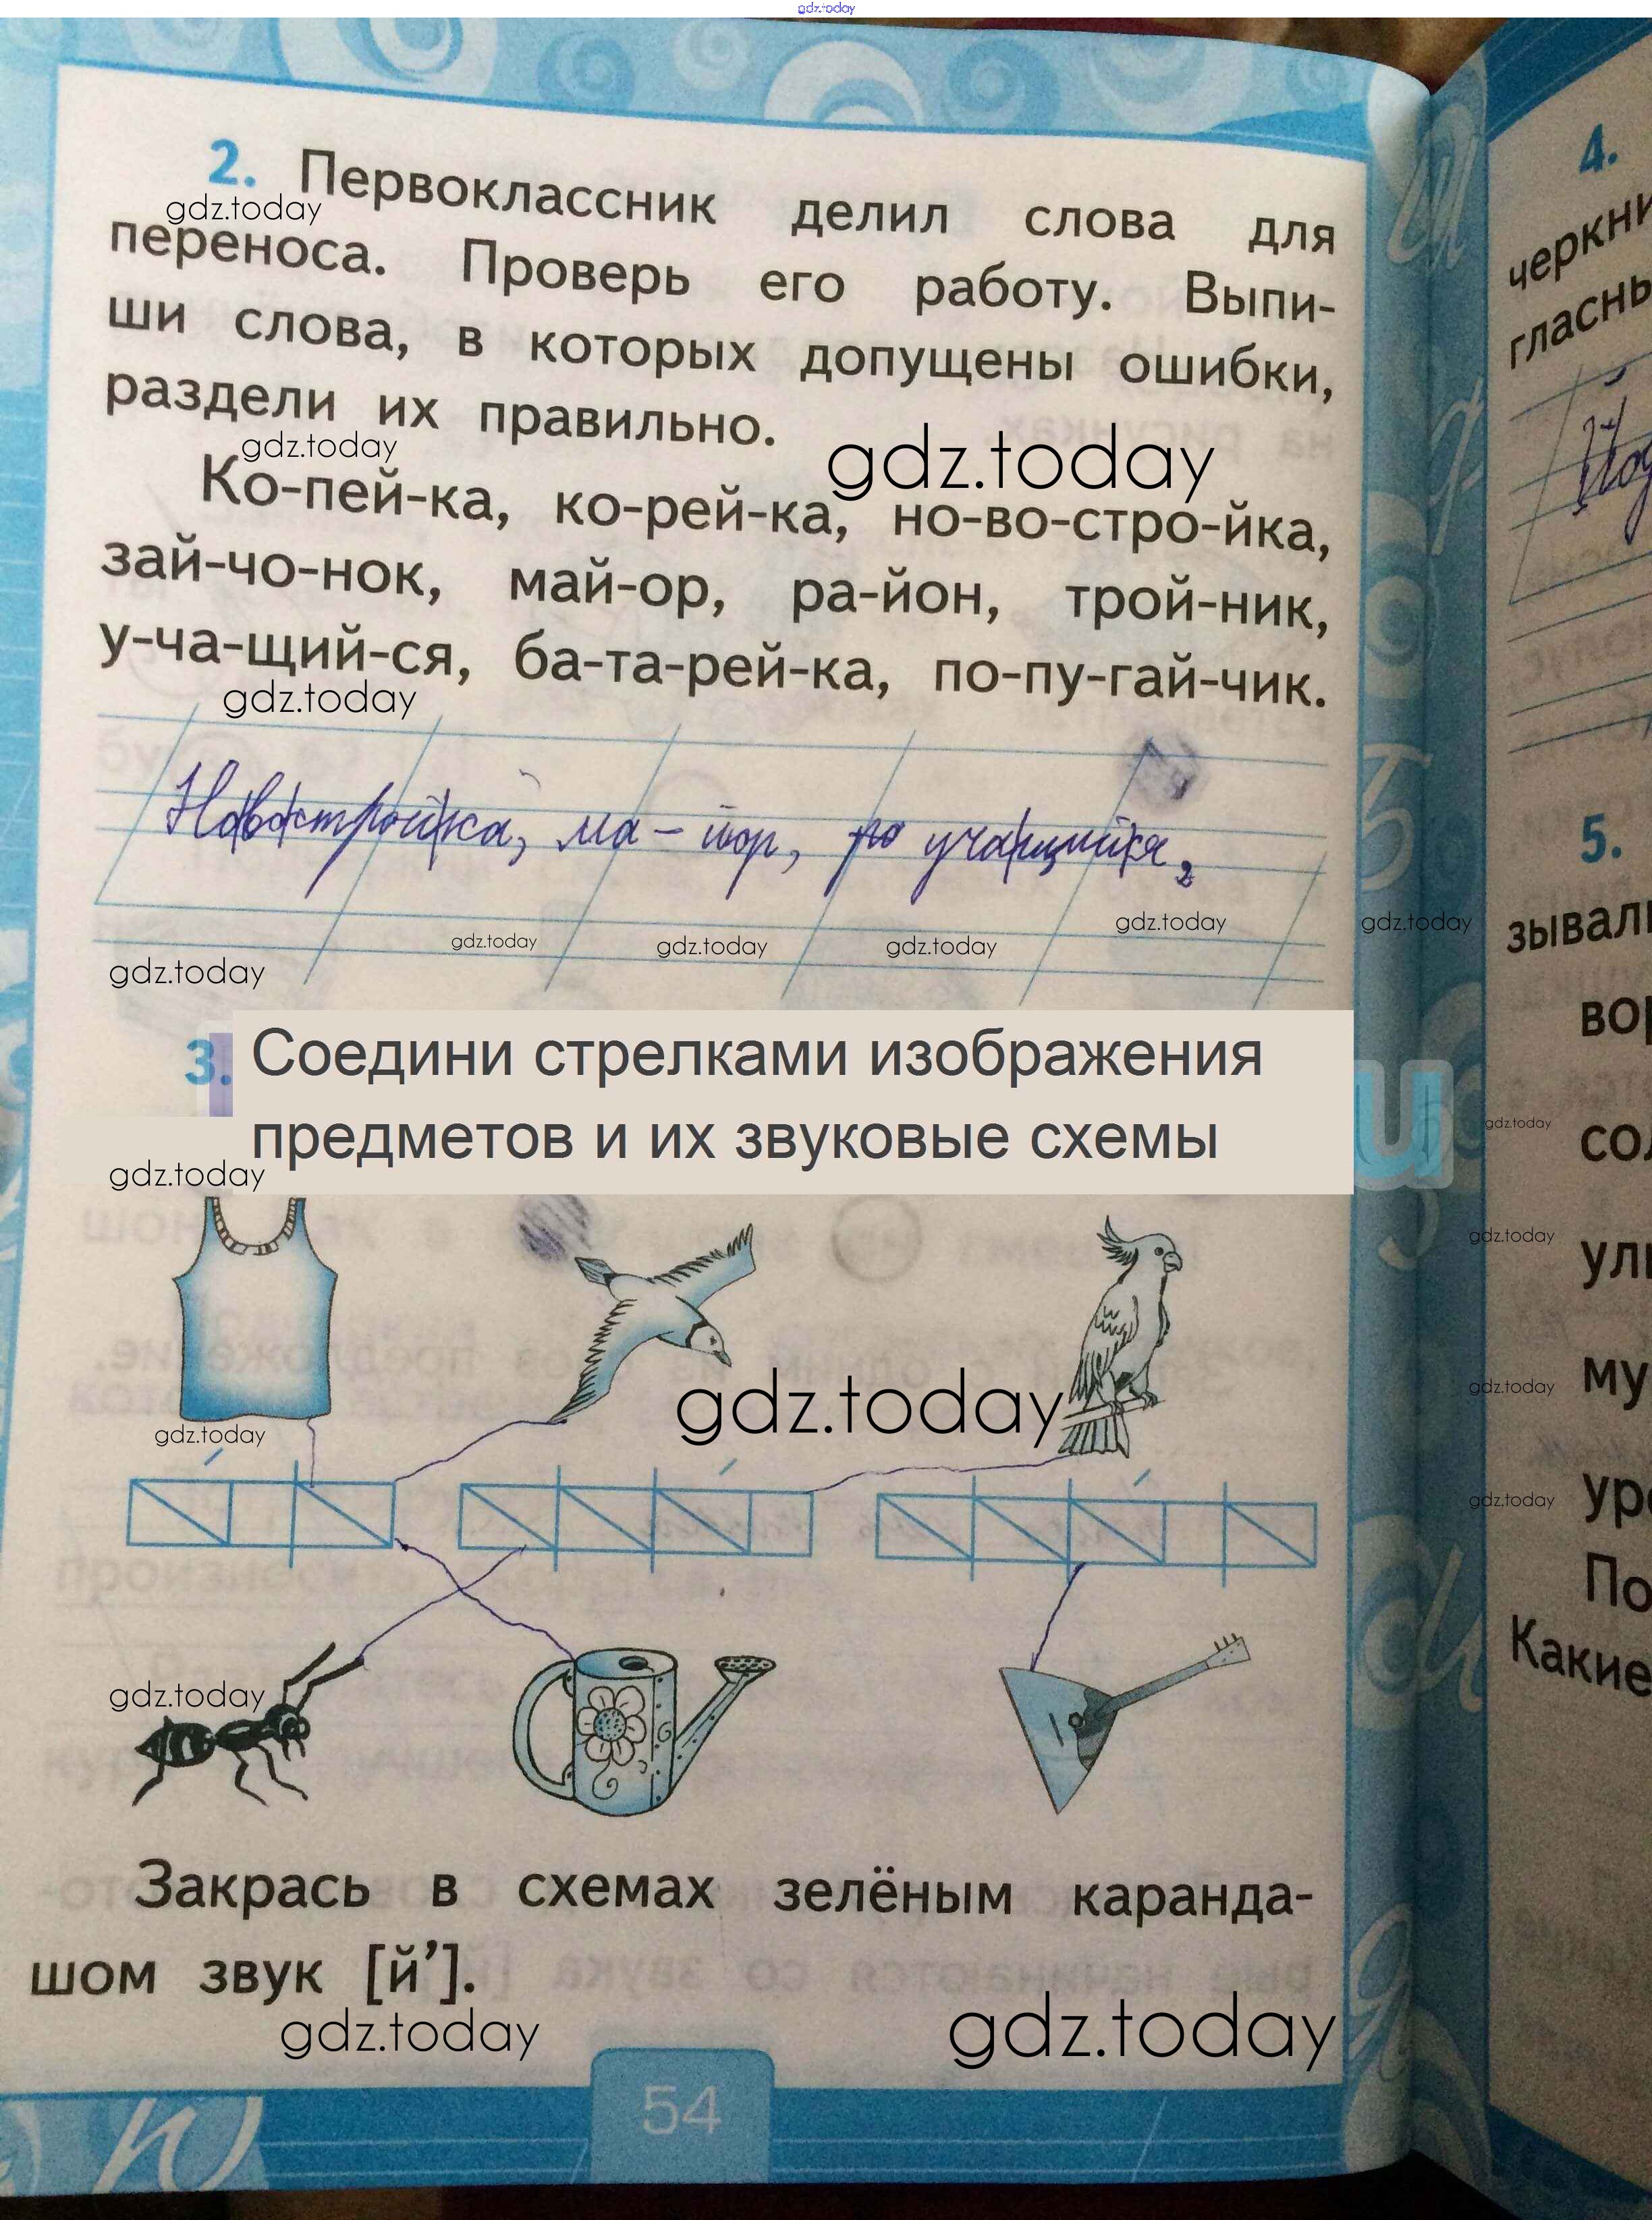 gdz.today
2. Первоклассник делил слова для
gdz.today
переноса. Проверь его работу. Выпи-
ши слова, в которых допущены ошибки,
раздели их правильно.
gdz.today
gdz.today
Ко-пей-ка, ко-рей-ка, но-во-стро-йка,
зай-чо-нок, май-ор, ра-йон, трой-ник,
у-ча-щий-ся, ба-та-рей-ка, по-пу-гай-чик.
gdz.today
Но|во|строй|ка, ма-йор, уча|щий|ся,
gdz.today gdz.today
gdz.today gdz.today gdz.today
gdz.today
3. Соедини стрелками изображения
предметов и их звуковые схемы
gdz.today
gdz.today
gdz.today
gdz.today
gdz.today
Закрась в схемах зелёным каранда-
шом звук [й’].
gdz.today gdz.today
54
4.
черкни
гласнь
5.
зывал
вор
gdz.today
сол
gdz.today
ули
gdz.today
му
gdz.today
уро
По
Какие